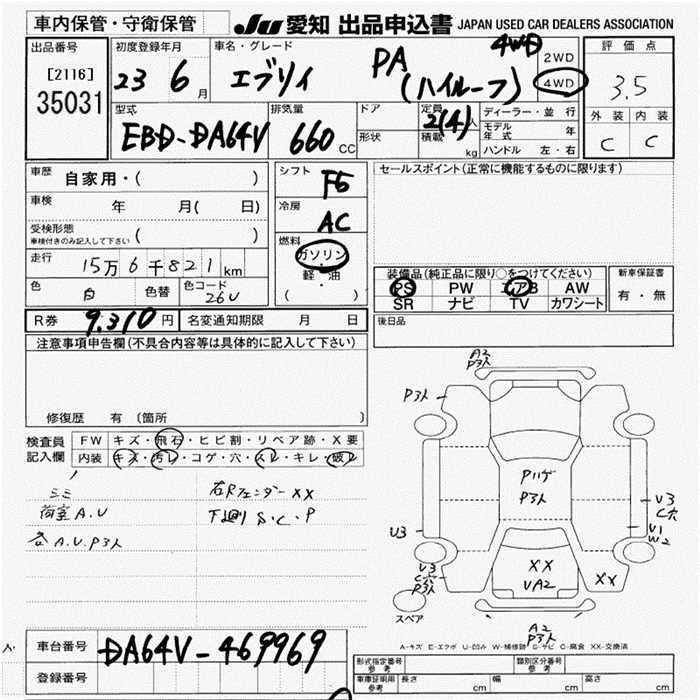 車内保管・守衛保管
JU 愛知 出品申込書 JAPAN USED CAR DEALERS ASSOCIATION
出品番号
[2116]
35031
初度登録年月
23 6 月
車名・グレード
エブリィ PA (ハイルーフ) 4WD
2WD
4WD
評価点
3.5
外装 内装
C C
型式
EBD-DA64V
排気量
660 CC
ドア
形状
定員 2(4) 人
積載 kg
ディーラー・並行
モデル年式 年
ハンドル 左・右
車歴 自家用・( )
車検 年 月( 日)
受検形態
車検付きのみ記入して下さい ( )
走行 15万6千821km
色 白 色替 色コード 26U
シフト F5
冷房 AC
燃料
ガソリン
軽・油
( )
セールスポイント(正常に機能するものに限ります)
装備品(純正品に限り○をつけてください)
PS PW エアB AW
SR ナビ TV カワシート
新車保証書
有・無
R券 9,310円 名変通知期限 月 日
後日品
注意事項申告欄(不具合内容等は具体的に記入して下さい)
修復歴 有 〔箇所 〕
検査員記入欄
FW キズ・飛石・ヒビ割・リペア跡・X要
内装 キズ・汚レ・コゲ・穴・スレ・キレ・破レ
ミミ
荷室A.U
各A.U.P3人
右Rフェンダー XX
下廻り S.C.P
A2
P3人
P3人
Pハゲ
P3人
U3
V3
C穴
V1
W2
V3
C穴
P3人
XX
VA2
XX
スペア
A2
P3人
A-キズ E-エクボ U-凹み W-補修跡 S-サビ C-腐食 XX-交換済
車台番号 DA64V-469969
登録番号
形式指定番号 参考
類別区分番号 参考
車庫証明用 参考
長さ cm 幅 cm 高さ cm